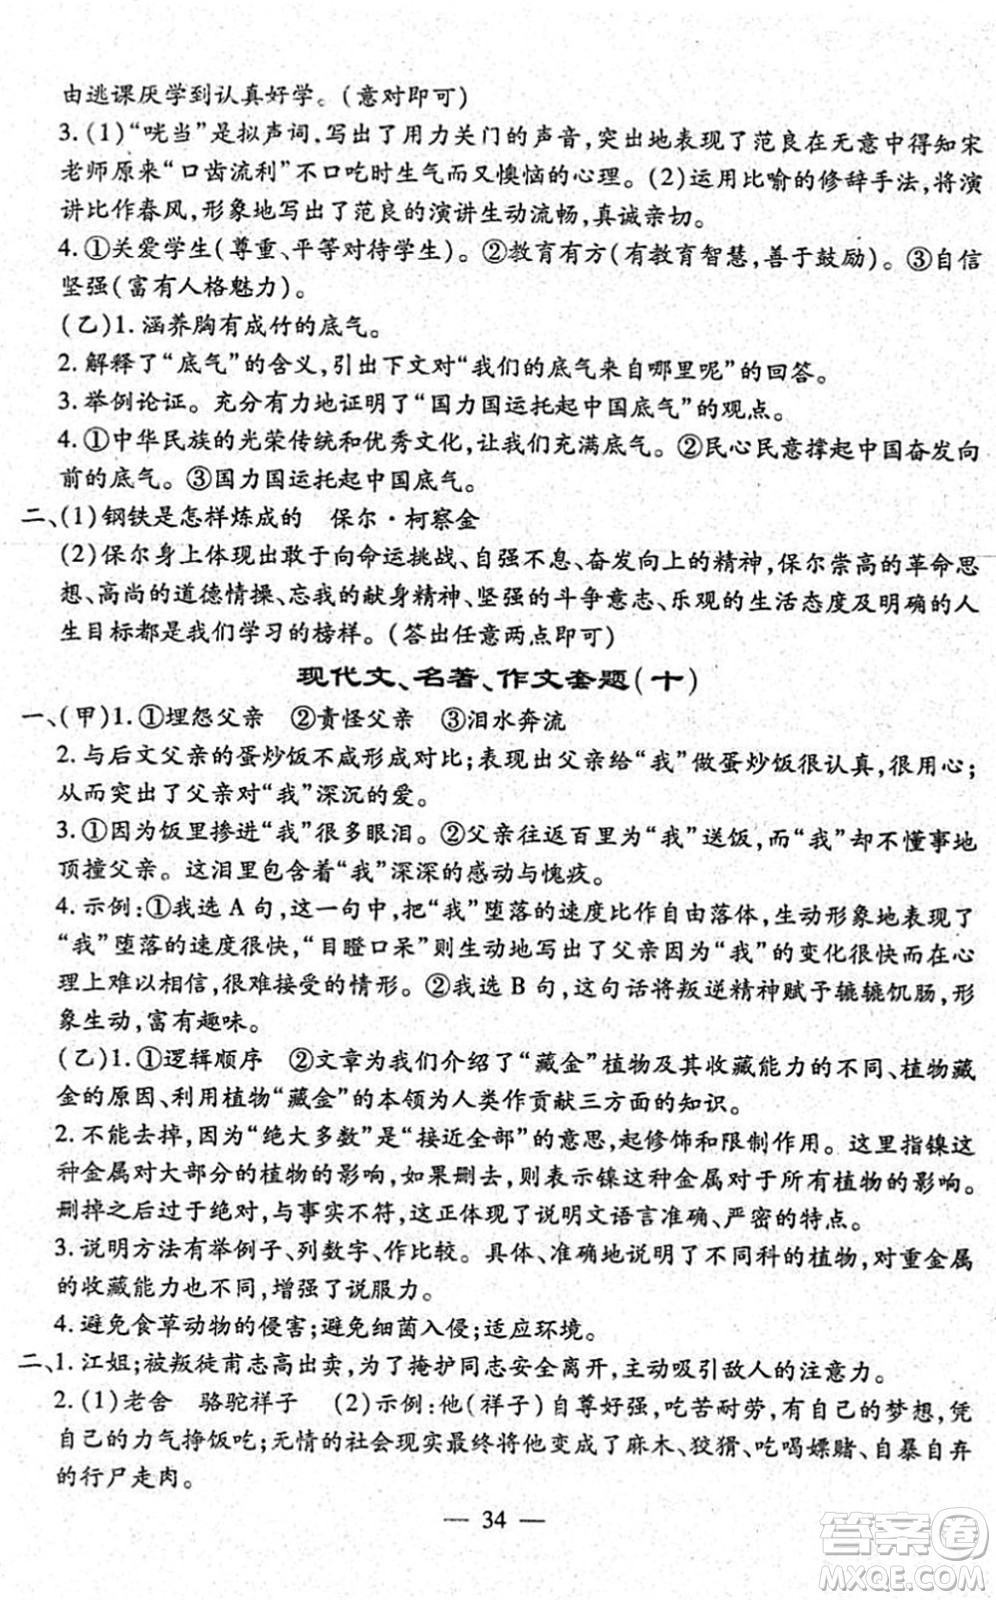 由逃课厌学到认真好学。(意对即可)
3.(1)“咣当”是拟声词,写出了用力关门的声音,突出地表现了范良在无意中得知宋
老师原来“口齿流利”不口吃时生气而又懊恼的心理。(2)运用比喻的修辞手法,将演
讲比作春风,形象地写出了范良的演讲生动流畅,真诚亲切。
4.①关爱学生(尊重、平等对待学生)。②教育有方(有教育智慧,善于鼓励)。③自信
坚强(富有人格魅力)。
(乙)1.涵养胸有成竹的底气。
2.解释了“底气”的含义,引出下文对“我们的底气来自哪里呢”的回答。
3.举例论证。充分有力地证明了“国力国运托起中国底气”的观点。
4.①中华民族的光荣传统和优秀文化,让我们充满底气。②民心民意撑起中国奋发向
前的底气。③国力国运托起中国底气。
二、(1)钢铁是怎样炼成的 保尔·柯察金
(2)保尔身上体现出敢于向命运挑战、自强不息、奋发向上的精神,保尔崇高的革命思
想、高尚的道德情操、忘我的献身精神、坚强的斗争意志、乐观的生活态度及明确的人
生目标都是我们学习的榜样。(答出任意两点即可)
现代文、名著、作文套题(十)
一、(甲)1.①埋怨父亲 ②责怪父亲 ③泪水奔流
2.与后文父亲的蛋炒饭不咸形成对比;表现出父亲给“我”做蛋炒饭很认真,很用心;
从而突出了父亲对“我”深沉的爱。
3.①因为饭里掺进“我”很多眼泪。②父亲往返百里为“我”送饭,而“我”却不懂事地
顶撞父亲。这泪里包含着“我”深深的感动与愧疚。
4.示例:①我选 A 句,这一句中,把“我”堕落的速度比作自由落体,生动形象地表现了
“我”堕落的速度很快,“目瞪口呆”则生动地写出了父亲因为“我”的变化很快而在心
理上难以相信,很难接受的情形。②我选 B 句,这句话将叛逆精神赋予辘辘饥肠,形
象生动,富有趣味。
(乙)1.①逻辑顺序 ②文章为我们介绍了“藏金”植物及其收藏能力的不同、植物藏
金的原因、利用植物“藏金”的本领为人类作贡献三方面的知识。
2.不能去掉,因为“绝大多数”是“接近全部”的意思,起修饰和限制作用。这里指镍这
种金属对大部分的植物的影响,如果删去,则表示镍这种金属对于所有植物的影响。
删掉之后过于绝对,与事实不符,这正体现了说明文语言准确、严密的特点。
3.说明方法有举例子、列数字、作比较。具体、准确地说明了不同科的植物,对重金属
的收藏能力也不同,增强了说服力。
4.避免食草动物的侵害;避免细菌入侵;适应环境。
二、1.江姐;被叛徒甫志高出卖,为了掩护同志安全离开,主动吸引敌人的注意力。
2.(1)老舍 骆驼祥子 (2)示例:他(祥子)自尊好强,吃苦耐劳,有自己的梦想,凭
自己的力气挣饭吃;无情的社会现实最终将他变成了麻木、狡猾、吃喝嫖赌、自暴自弃
的行尸走肉。
— 34 —
答案圈
MXQE.COM